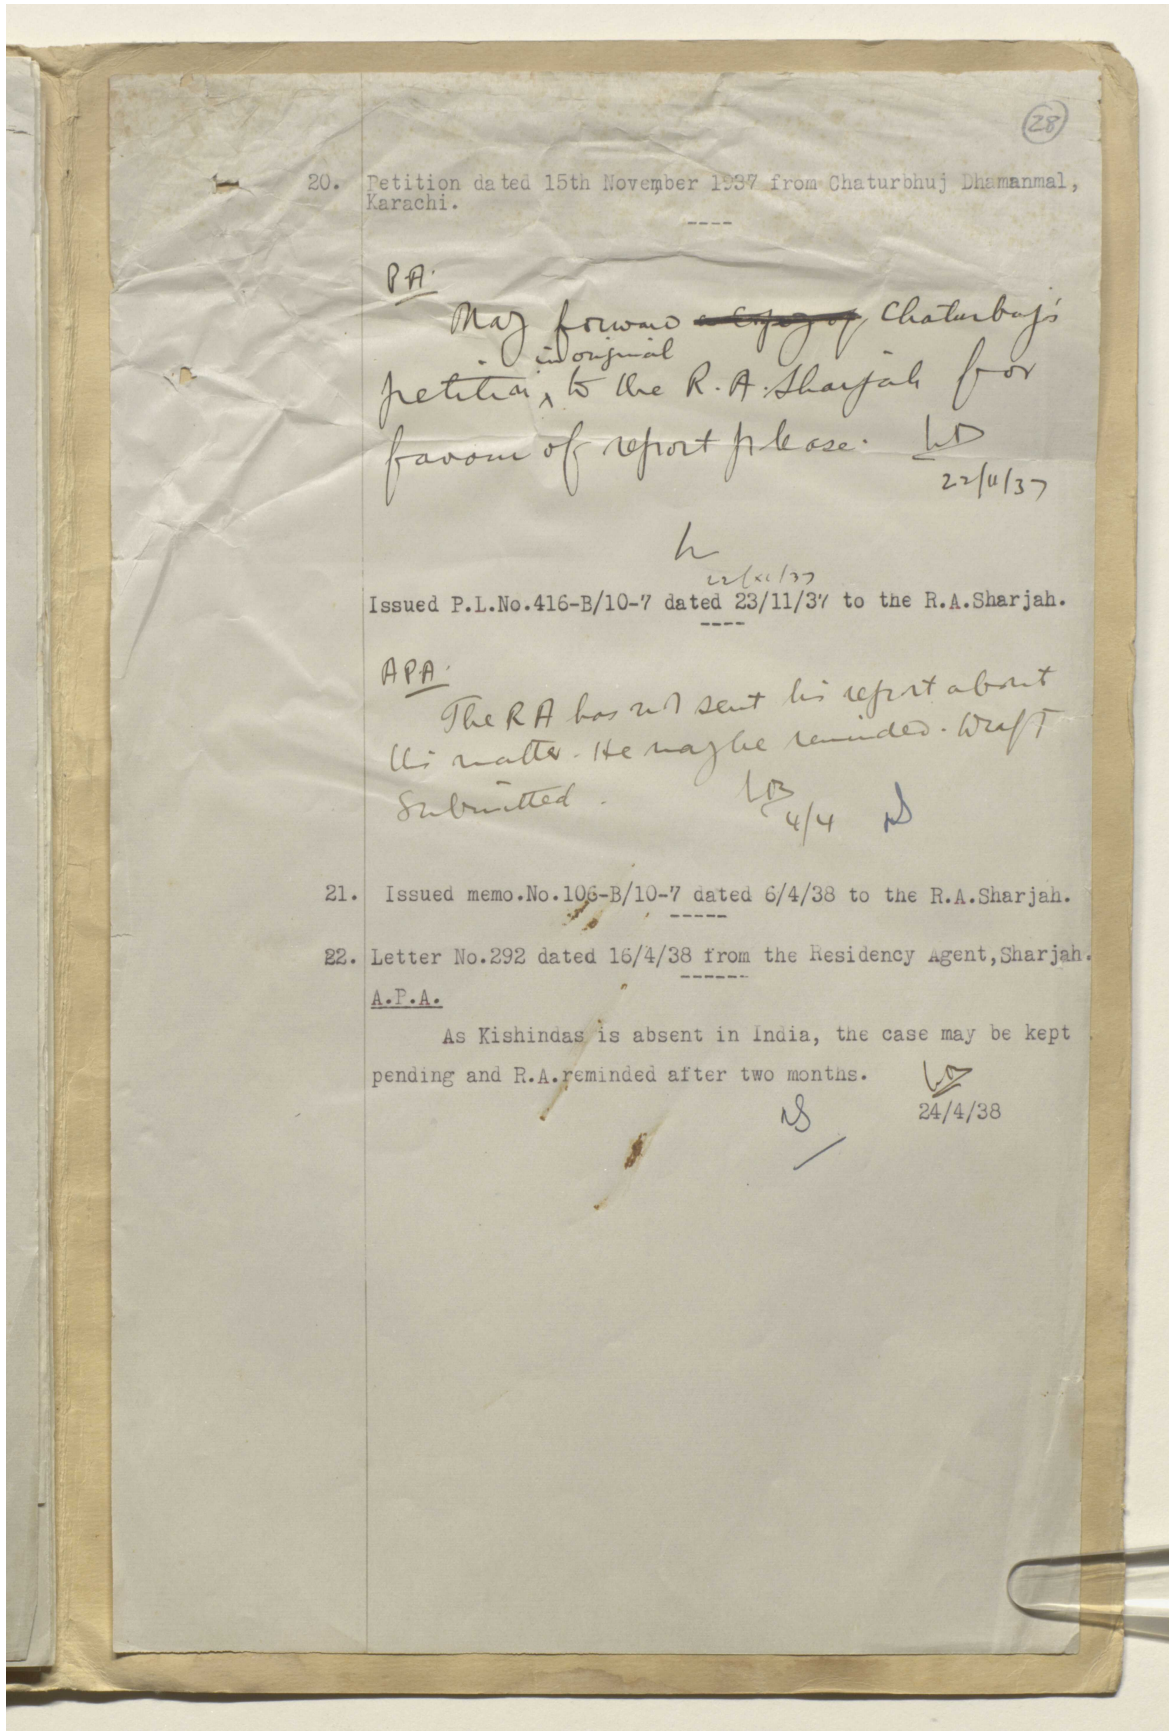 28
20. Petition dated 15th November 1937 from Chaturbhuj Dhamanmal,
Karachi.
----
PA.
May forward a copy of Chaturbuj's
in original
petition, to the R.A. Sharjah for
favour of report please.
22/11/37
22/xi/37
Issued P.L.No.416-B/10-7 dated 23/11/37 to the R.A.Sharjah.
----
APA.
The RA has not sent his report about
this matter. He may be reminded. Draft
Submitted.
4/4
21. Issued memo.No.106-B/10-7 dated 6/4/38 to the R.A.Sharjah.
-----
22. Letter No.292 dated 16/4/38 from the Residency Agent,Sharjah.
------
A.P.A.
As Kishindas is absent in India, the case may be kept
pending and R.A.reminded after two months.
24/4/38